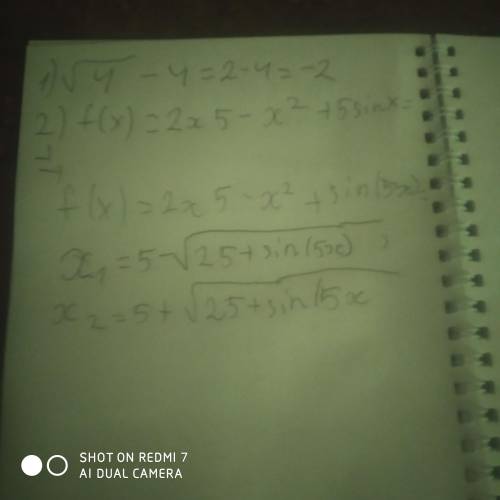 1) √4 - 4 = 2 - 4 = -2
2) f(x) = 2x 5 - x² + 5sinx =
f(x) = 2x 5 - x² + sin(5x)
x₁ = 5 - √25 + sin(5x) ;
x₂ = 5 + √25 + sin(5x
SHOT ON REDMI 7
AI DUAL CAMERA